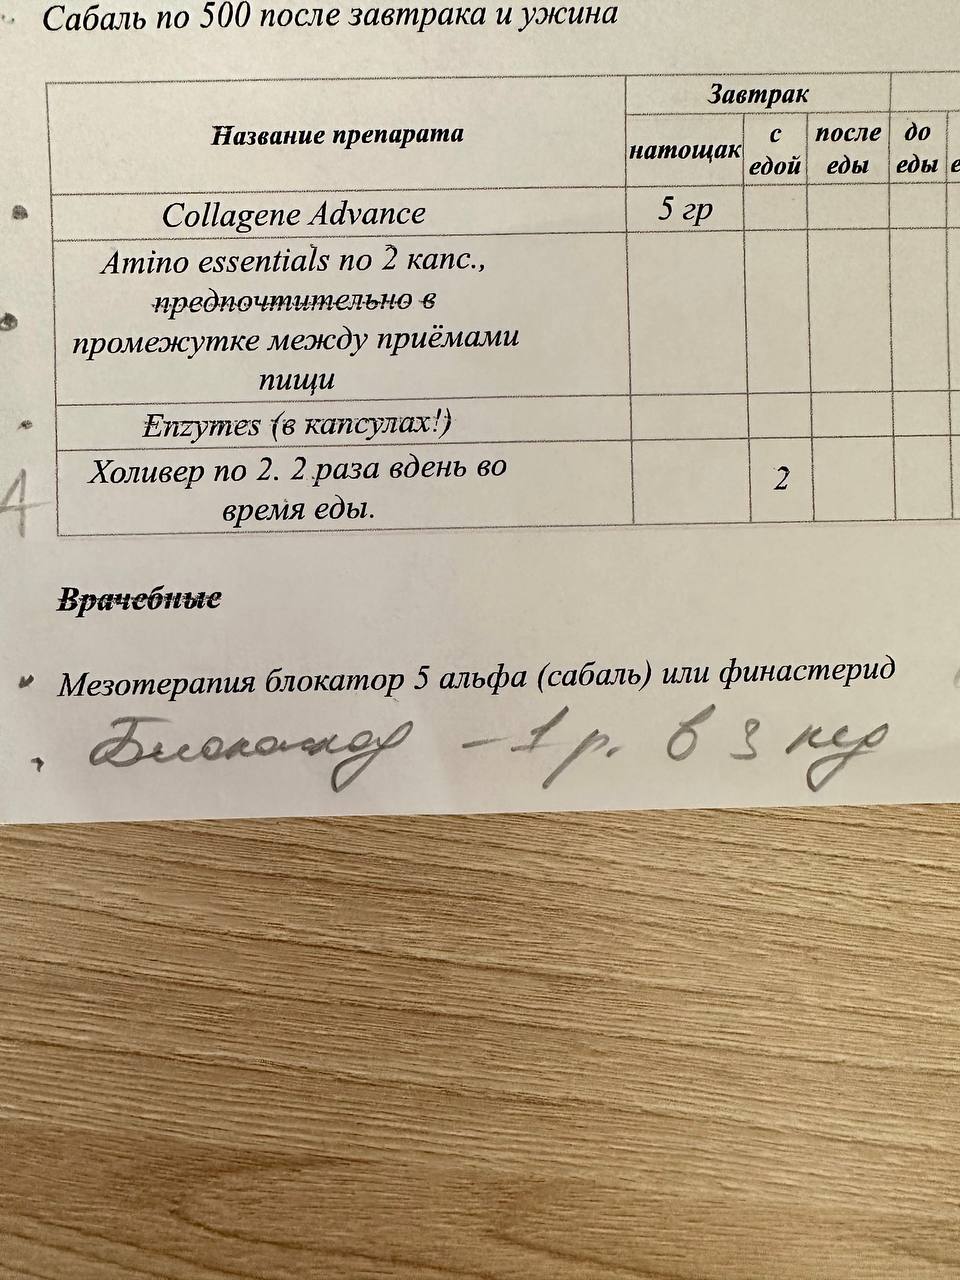 Сабаль по 500 после завтрака и ужина
Название препарата
Завтрак
натощак
с едой
после еды
до еды
Collagene Advance 5 гр
Amino essentials по 2 капс.,
предпочтительно в
промежутке между приёмами
пищи
Enzymes (в капсулах!)
Холивер по 2. 2 раза вдень во
время еды.
2
Врачебные
Мезотерапия блокатор 5 альфа (сабаль) или финастерид
- 1 р. в 3 нед